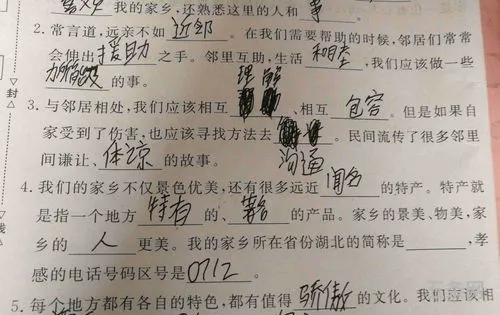 我的家乡,还熟悉这里的人和事
2. 常言道,远亲不如近邻。在我们需要帮助的时候,邻居们常常
会伸出援助之手。邻里互助,生活和睦,我们应该做一些
的事。
理解
3. 与邻居相处,我们应该相互、相互包容。但是如果自
家受到了伤害,也应该寻找方法去。民间流传了很多邻里
沟通
间谦让、体凉的故事。
4. 我们的家乡不仅景色优美,还有很多远近闻名的特产。特产就
是指一个地方特有的、著名的产品。家乡的景美、物美,家
乡的人更美。我的家乡所在省份湖北的简称是,孝
感的电话号码区号是0712。
5. 每个地方都有各自的特色,都有值得骄傲的文化。我们应该相
封
线